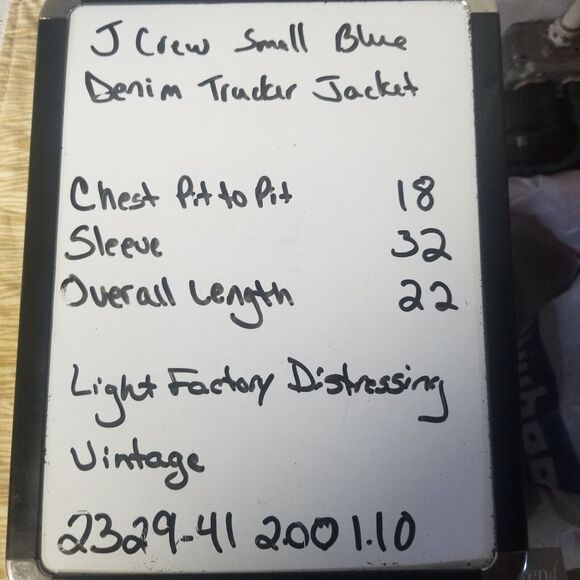 J Crew Small Blue
Denim Trucker Jacket
Chest Pit to Pit 18
Sleeve 32
Overall Length 22
Light Factory Distressing
Vintage
2329-41 2.00 1.10